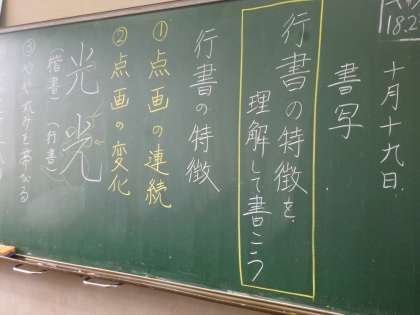 十月十九日
書写
行書の特徴を
理解して書こう
行書の特徴
①点画の連続
②点画の変化
光 光
(楷書)(行書)
③やや丸みを帯びる
18.2